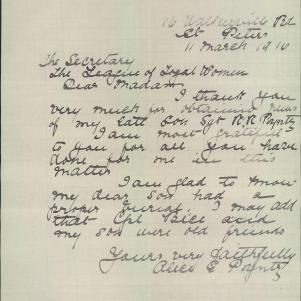 16 Walkerville Rd
St Peters
11 March 1916
The Secretary
The League of Loyal Women
Dear Madam
I thank you
very much for obtaining news
of my late Son Sgt R R Paynter
I am most grateful
to you for all you have
done for me in this
matter
I am glad to know
my dear son had a
proper burial. I may add
that Cpl Bice and
my son were old friends
Yours very faithfully
Alice E Paynter